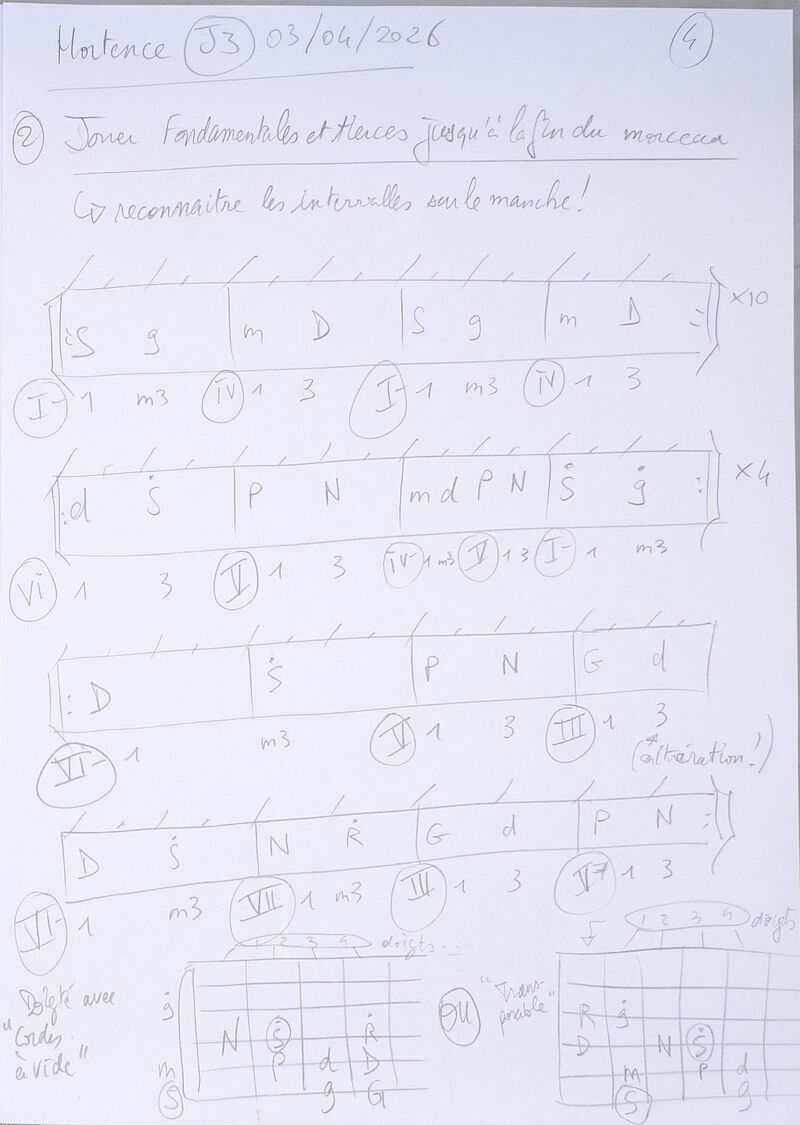 Hortence J3 03/04/2026 4
2 Jouer Fondamentales et tierces jusqu'à la fin du morceau
↳ reconnaitre les intervalles sur le manche!
:S g | m D | S g | m D : x10
I- 1 m3 IV 1 3 I- 1 m3 IV 1 3
:d Ṡ | P N | m d P N | Ṡ ġ : x4
VI 1 3 V 1 3 IV- 1 m3 V 1 3 I- 1 m3
: D | Ṡ | P N | G d
VI- 1 m3 V 1 3 III 1 3
(altération!)
D Ṡ | N Ṙ | G d | P N :
VI- 1 m3 VII 1 m3 III 1 3 V7 1 3
1 2 3 4 doigts...
Doigté avec
"Cordes
à vide"
ġ
N Ṡ Ṙ
m P d D
S g G
OU
"Trans-
posable"
1 2 3 4 doigts
R ġ
D N Ṡ
m P d
S g